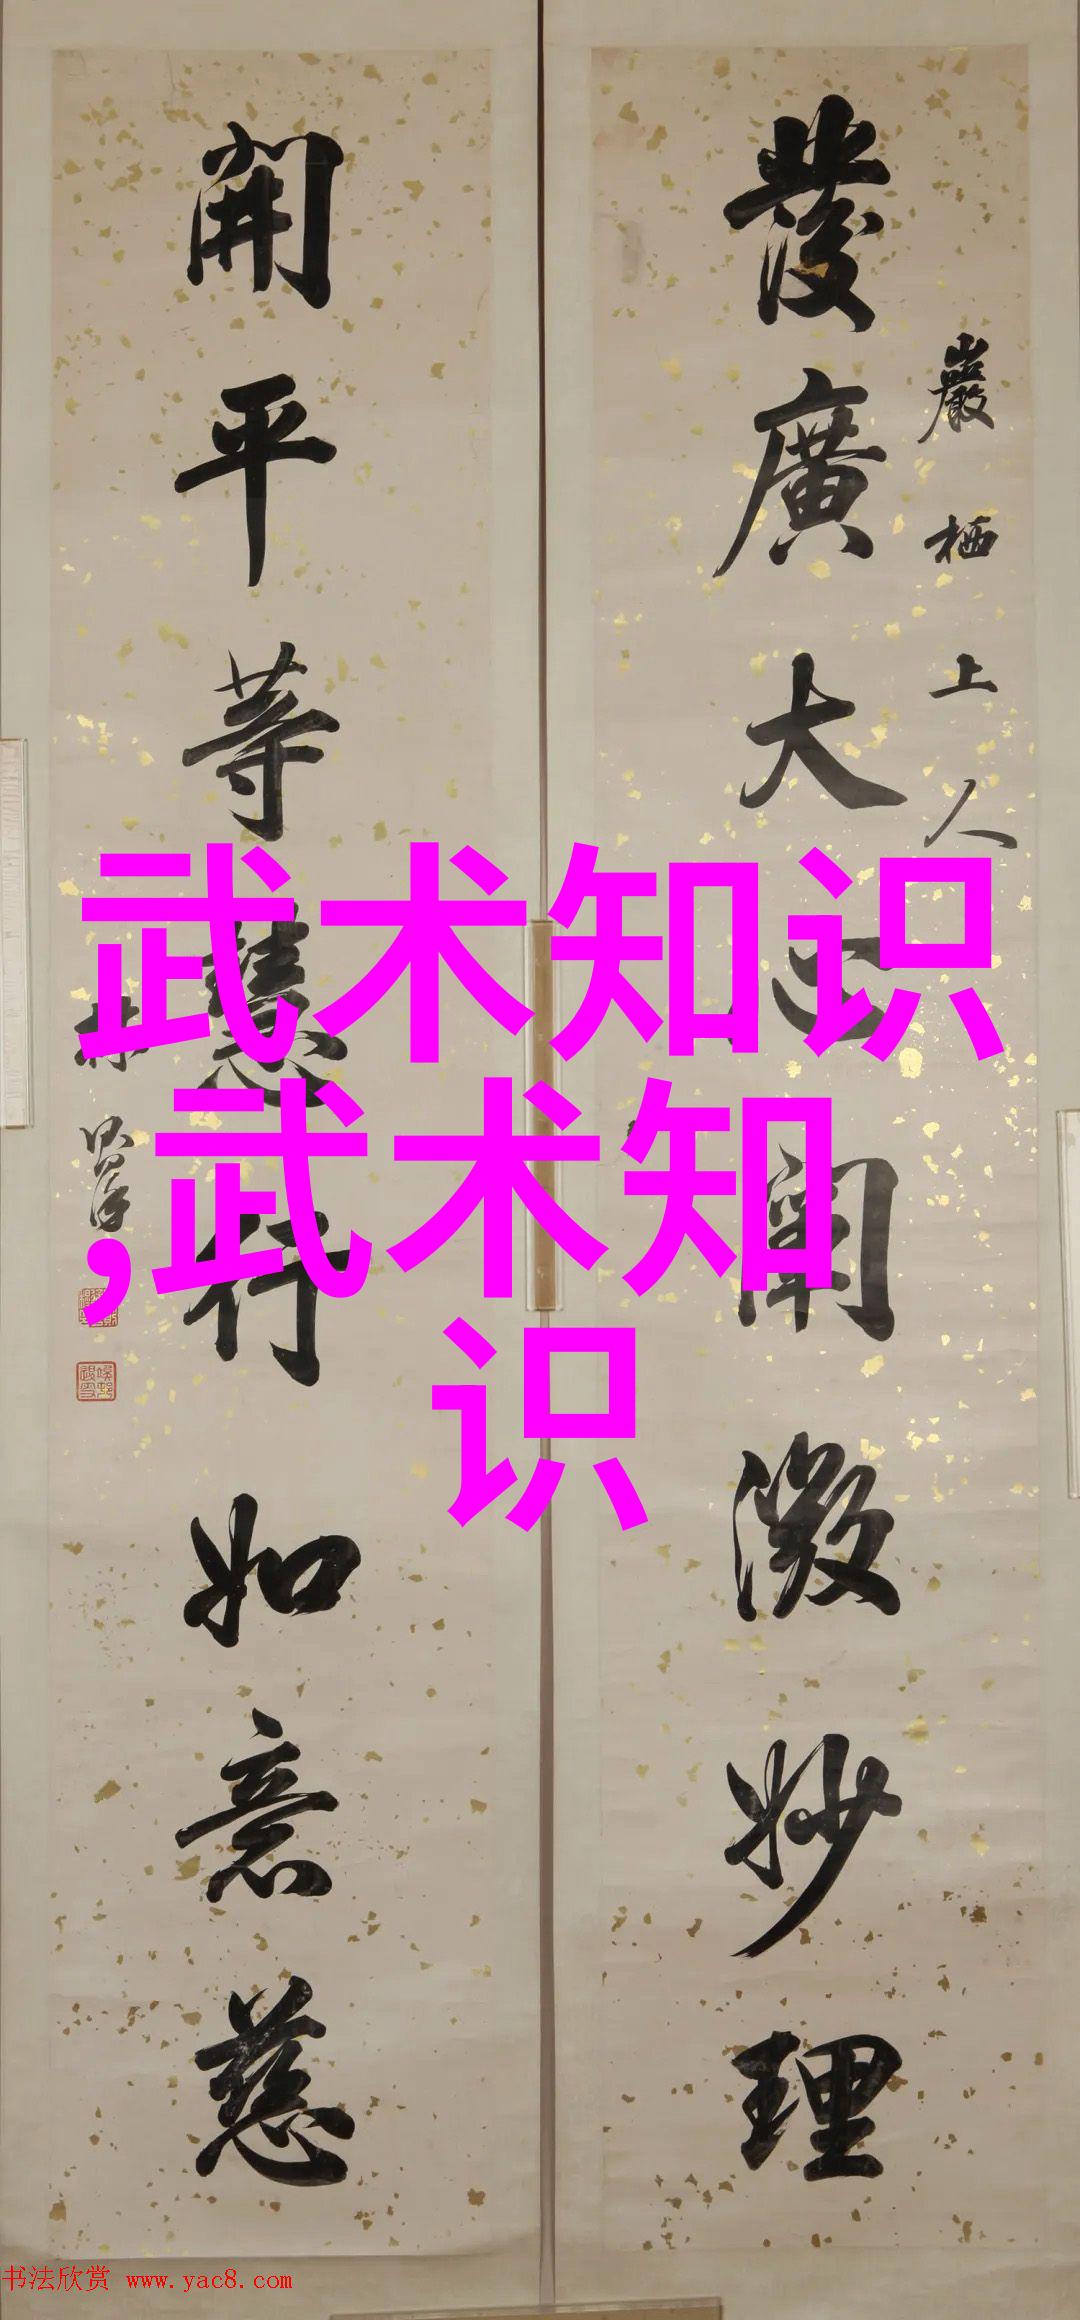 巖栖上人
發廣大心闡微妙理
開平等慧行如意慈
林則徐
武术知识
,武术知
识
书法欣赏 www.yac8.com